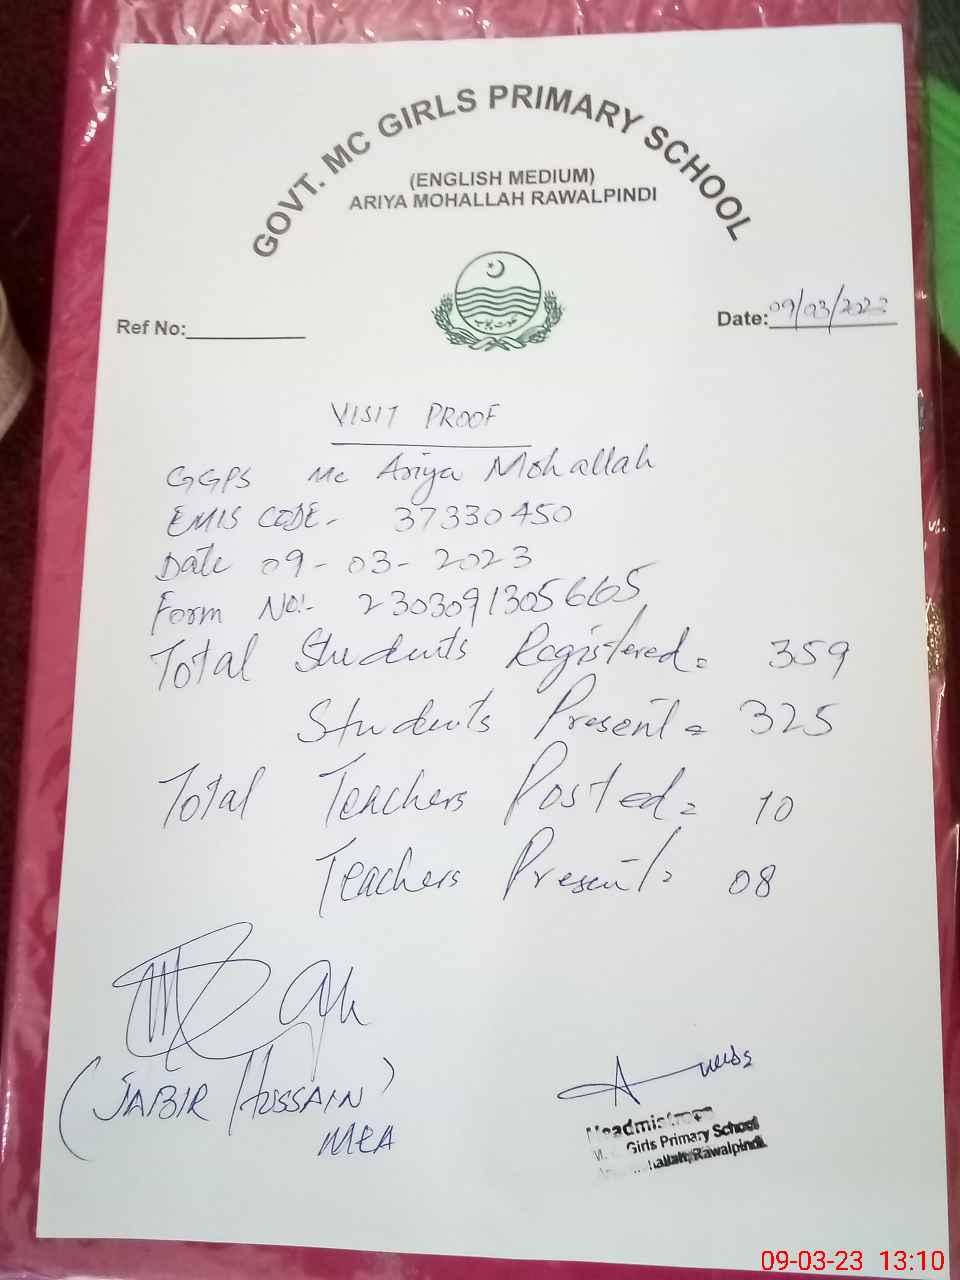 GOVT. MC GIRLS PRIMARY SCHOOL
(ENGLISH MEDIUM)
ARIYA MOHALLAH RAWALPINDI
حکومت پنجاب
Ref No:
Date: 09/03/2023
VISIT PROOF
GGPS Mc Ariya Mohallah
EMIS CODE- 37330450
Date 09-03-2023
Form No:- 2303091305665
Total Students Registered= 359
Students Present= 325
Total Teachers Posted= 10
Teachers Present= 08
(JABIR HUSSAIN)
MEA
Headmistress
Girls Primary School
Rawalpindi
09-03-23 13:10